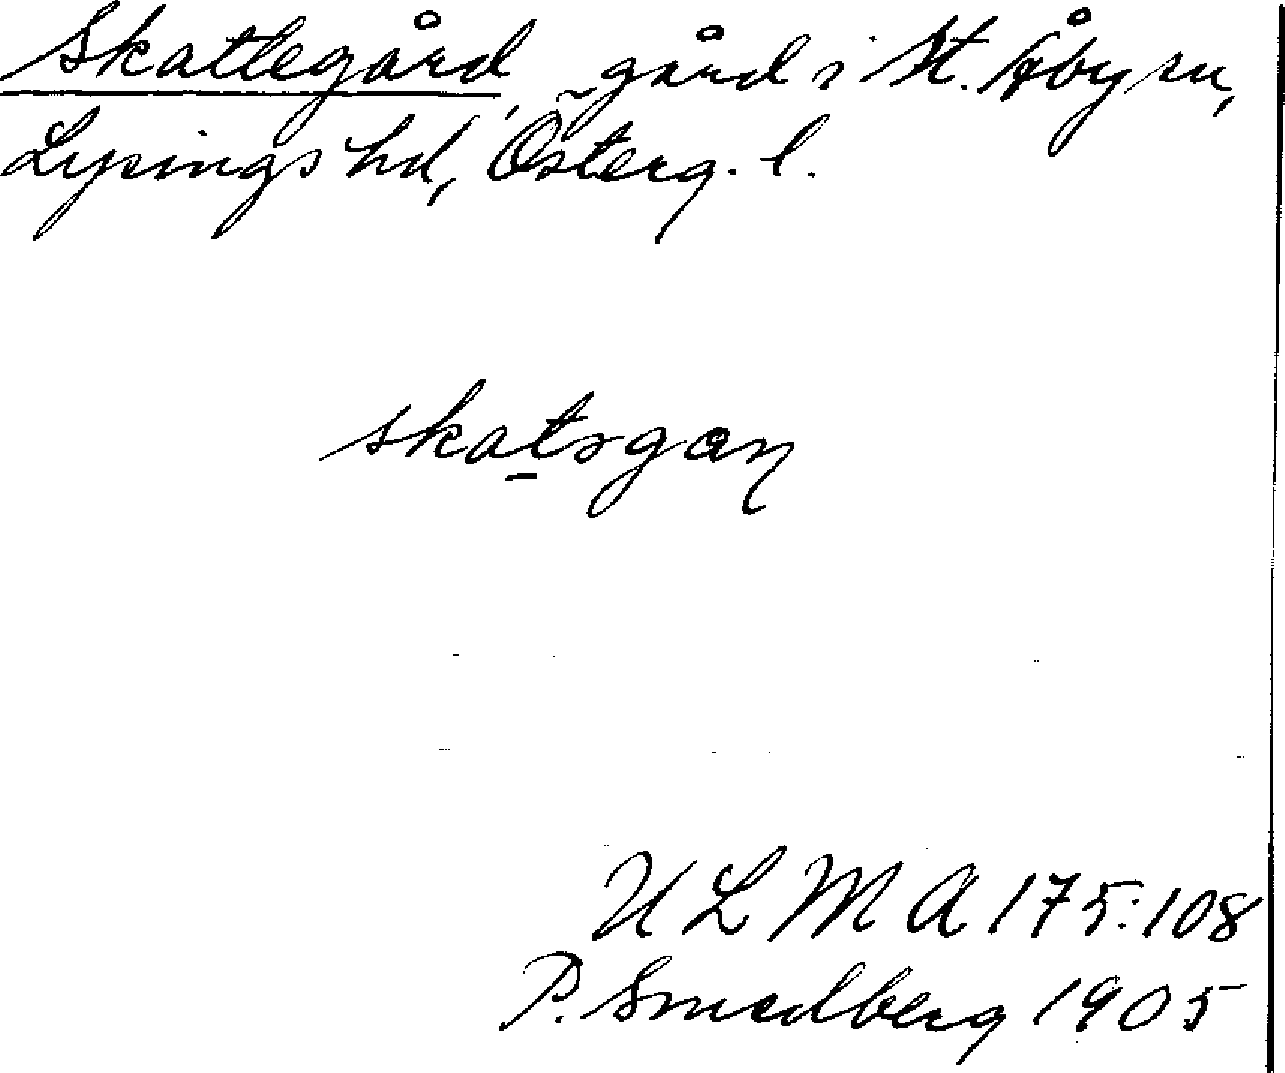 Skattegård, gård i St. Åby sn,
Lysings hd, Österg. l.
skatsgaɳ
ULMA 175:108
P. Smedberg 1905